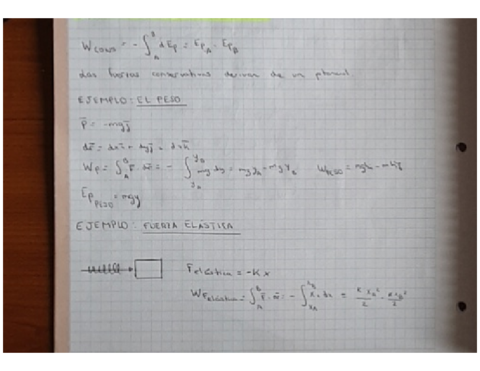 W cons = - ∫_A^B dEp = Ep_A - Ep_B
Las fuerzas conservativas derivan de un potencial.
EJEMPLO: EL PESO
P̄ = -mgj̄
dr̄ = dxī + dyj̄ + dzk̄
W_P = ∫_A^B P̄ · dr̄ = - ∫_{y_A}^{y_B} mg dy = mg y_A - mg y_B
Ep_PESO = mgy
EJEMPLO: FUERZA ELÁSTICA
F elástica = -Kx
W F elástica = ∫_A^B F̄ · dr̄ = - ∫_{x_A}^{x_B} Kx dx = K x_A²/2 - K x_B²/2